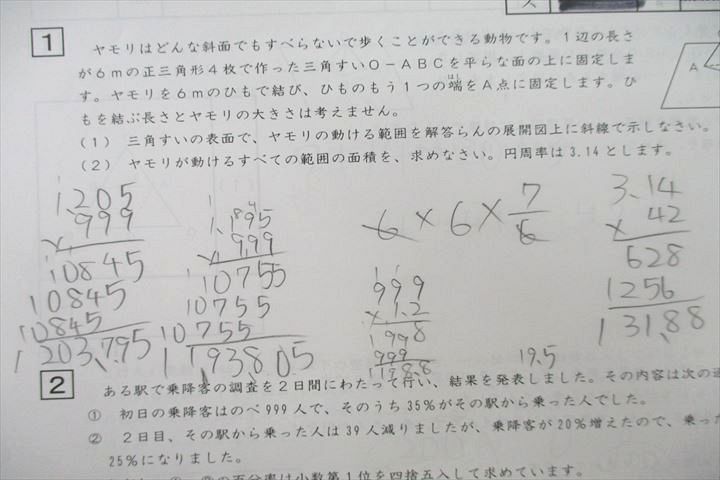 1
ヤモリはどんな斜面でもすべらないで歩くことができる動物です。1辺の長さ
が6mの正三角形4枚で作った三角すいO－ABCを平らな面の上に固定しま
す。ヤモリを6mのひもで結び、ひものもう1つの端をA点に固定します。ひ
はし
もを結ぶ長さとヤモリの大きさは考えません。
A
(1) 三角すいの表面で、ヤモリの動ける範囲を解答らんの展開図上に斜線で示しなさい。
(2) ヤモリが動けるすべての範囲の面積を、求めなさい。円周率は3.14とします。
1,205
× 999
10845
10845
10845
1203,795
1,195
× 999
10755
10755
10755
1193,805
6×6×7/6
999
×1.2
1998
999
1198.8
19.5
3.14
× 42
628
1256
131.88
2
ある駅で乗降客の調査を2日間にわたって行い、結果を発表しました。その内容は次の
① 初日の乗降客はのべ999人で、そのうち35%がその駅から乗った人でした。
② 2日目、その駅から乗った人は39人減りましたが、乗降客が20%増えたので、乗っ
25%になりました。
の百分率は小数第1位を四捨五入して求めています。